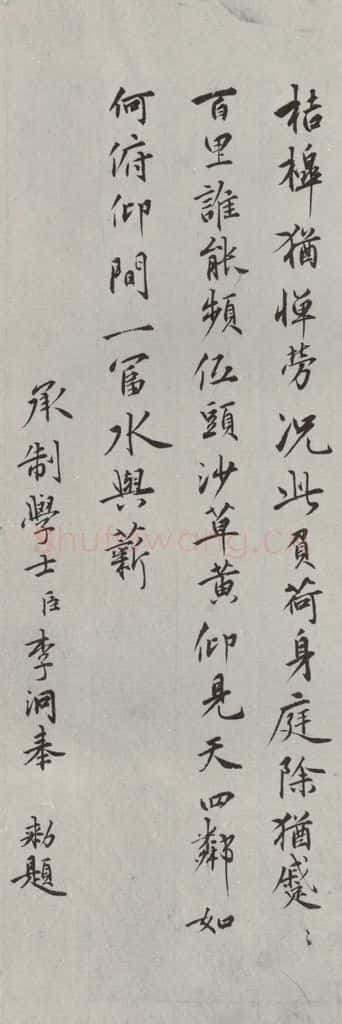 桔槔猶憚勞况此負荷身庭除猶蹙〻
百里誰能頻低頭沙草黄仰見天四鄰如
何俯仰間一富水與薪
承制學士臣李泂奉 勑題
shufawang.cn